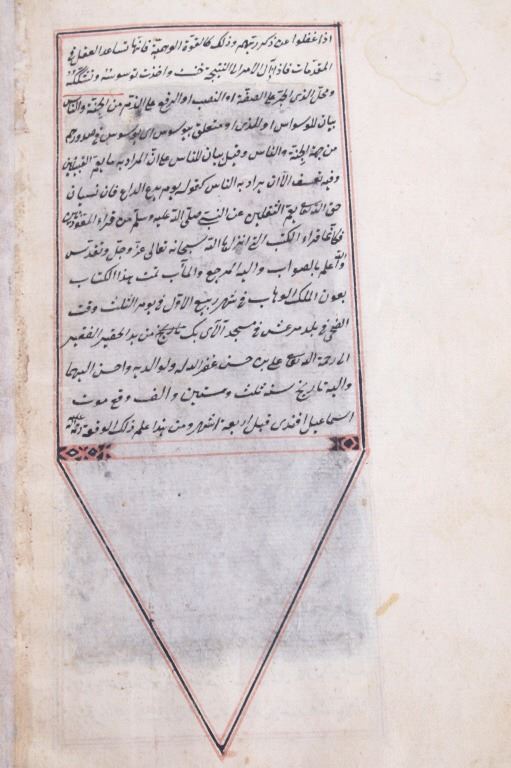 اذا غفلوا عن ذكر ربهم وذلك كالقوة الوهمية فانها تساعد العقل في
المقدمات فاذا آل الامر الى النتيجة خنست واخذت توسوسه وتشككه
ومحل الذى الجر على الصفة او النصب او الرفع على الذم من الجنة والناس
بيان للوسواس او للذى او متعلق بيوسوس اى يوسوس فى صدورهم
من جهة الجنة والناس وقيل بيان للناس على ان المراد به ما يعم القبيلين
وفيه تعسف الا ان يراد به الناسى كقوله يوم يدع الداع فان نسيان
حق الله تعالى يعم الثقلين عن النبى صلى الله عليه وسلم من قراء المعوذتين
فكانما قراء الكتب التى انزلها الله سبحانه تعالى عز وجل وتقدس
والله اعلم بالصواب واليه المرجع والمآب تمت هذا الكتاب
بعون الملك الوهاب فى شهر ربيع الاول فى يوم الثلث وقت
الضحى فى بلد مرعش فى مسجد الاى بك تاريخ من يد الحقير الفقير
الى رحمة الله تعالى على بن حسن غفر الله له ولوالديه واحسن اليهما
واليه تاريخ سنه ثلث وستين والف وقع موت
اسماعيل افندى قبل اربعة اشهر ومن هذا علم ذلك الوقعة